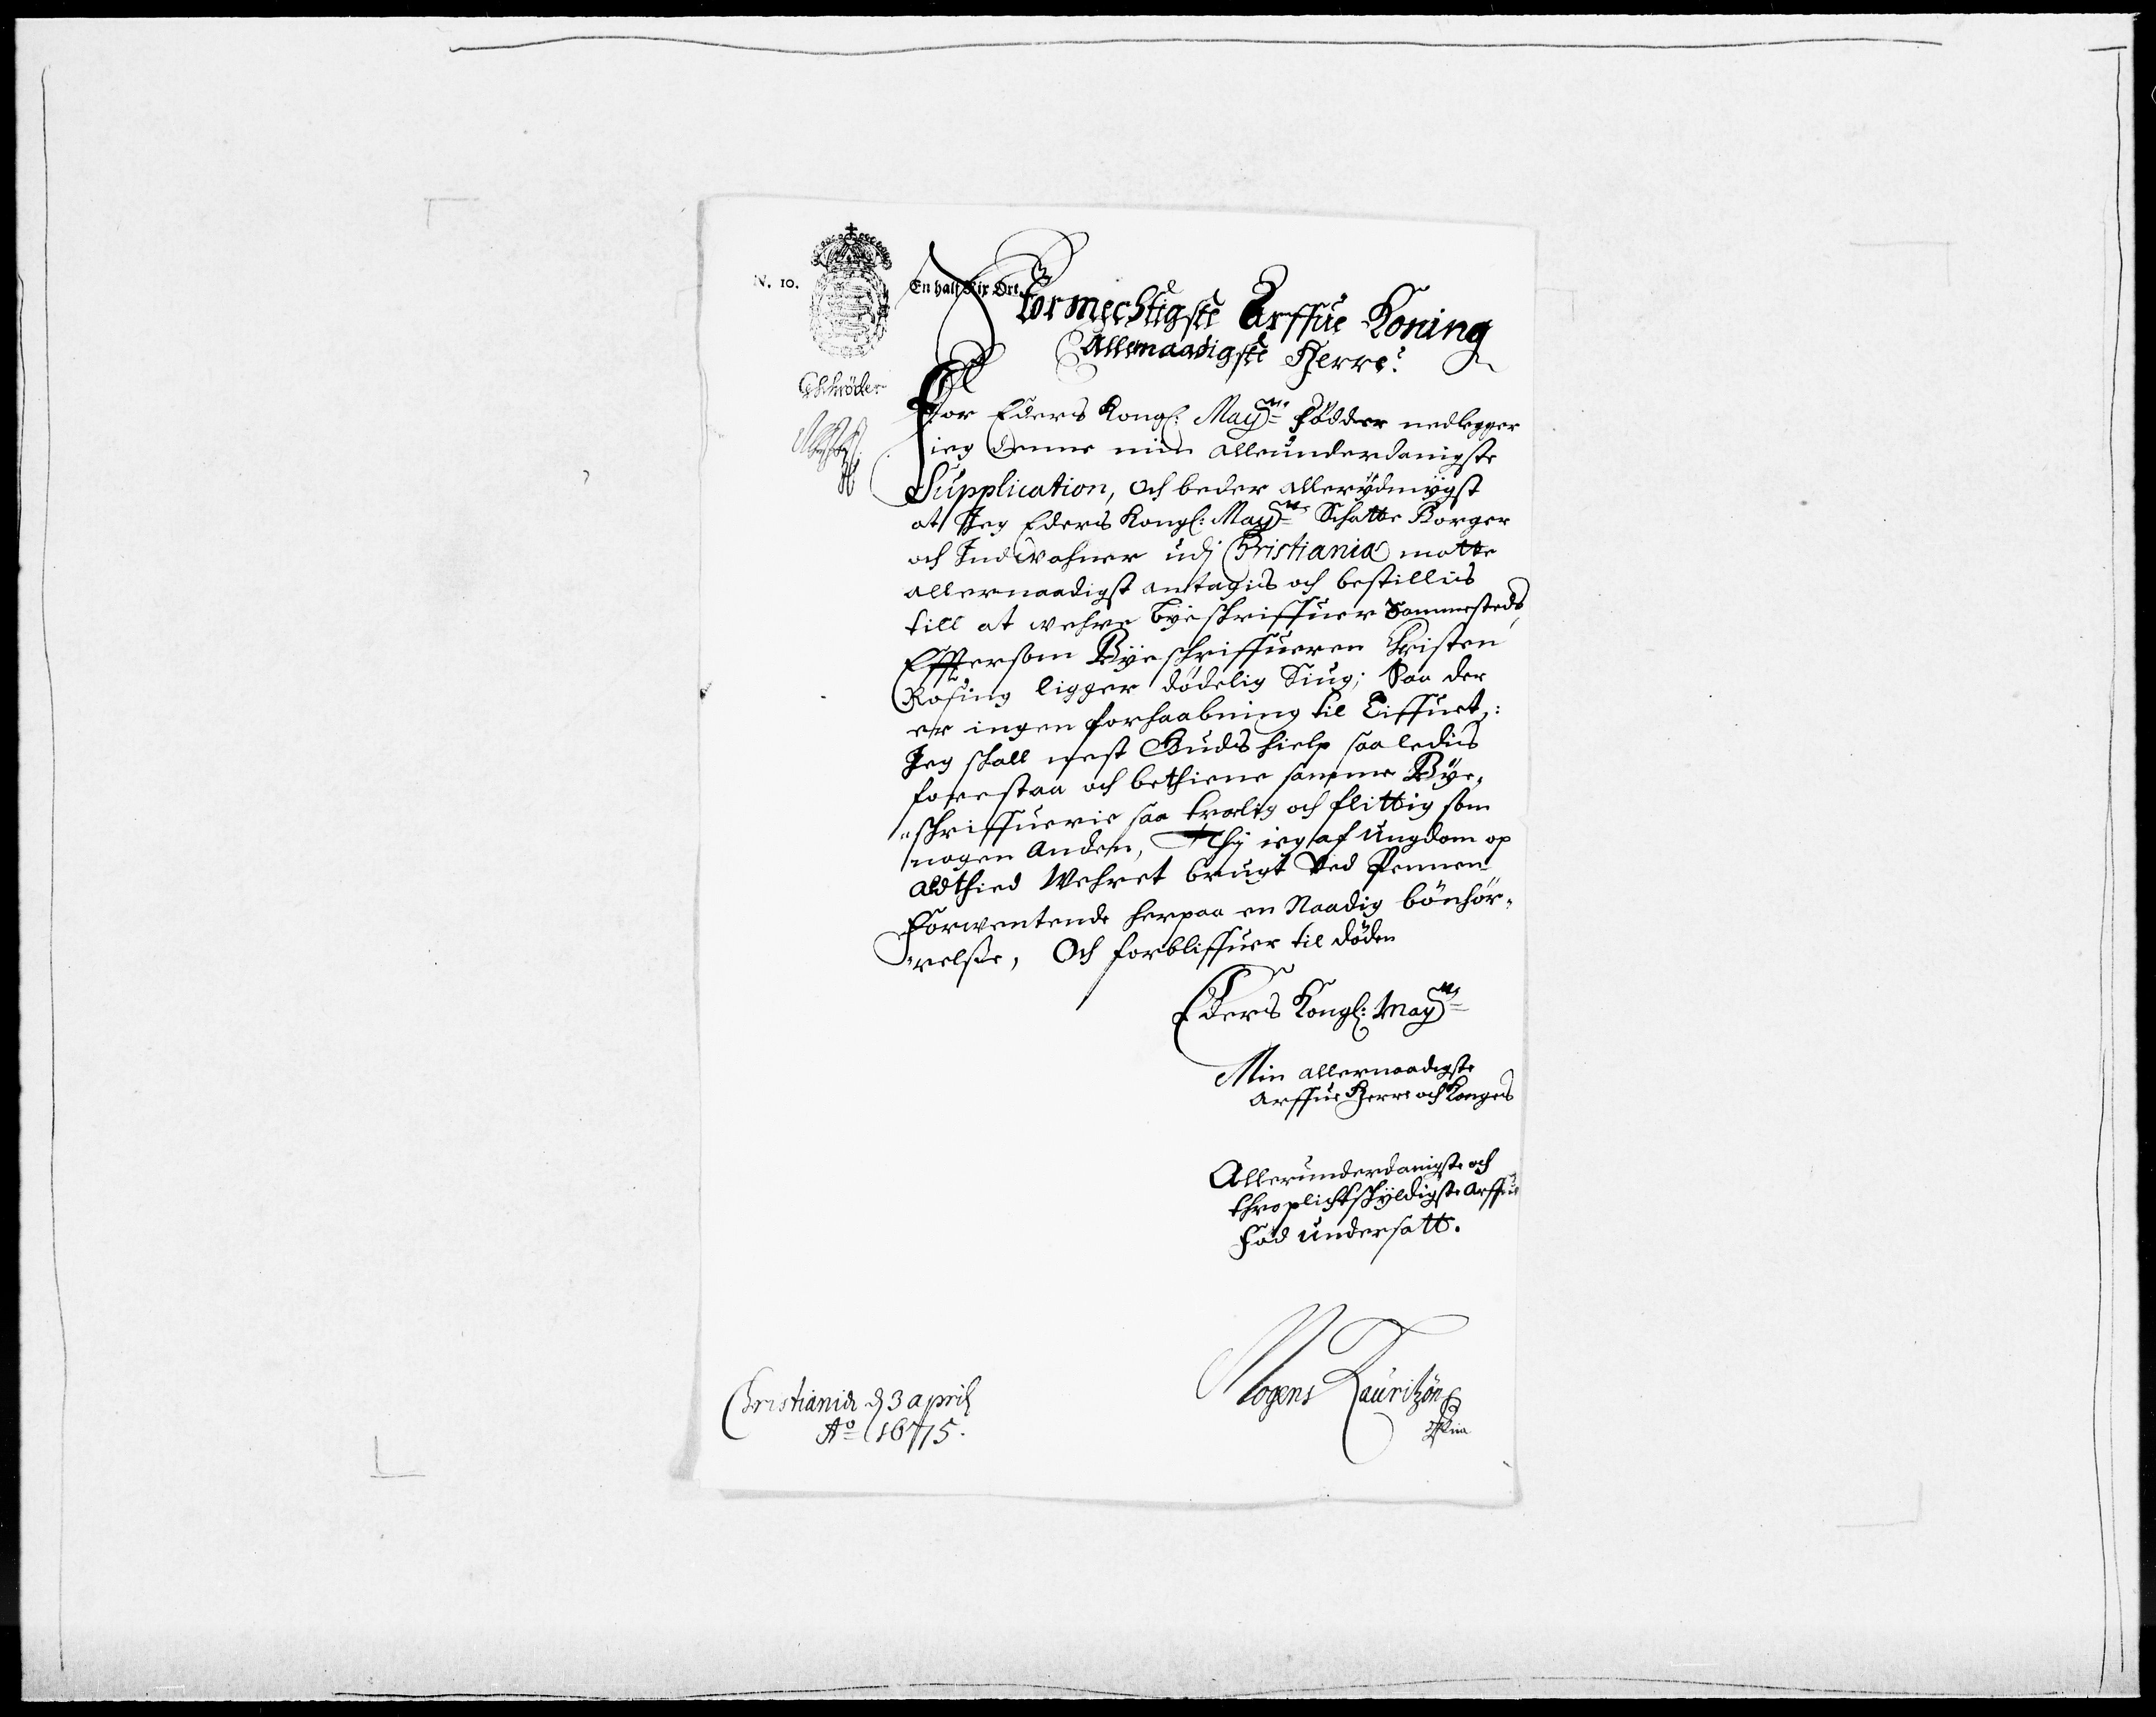 N. 10.
En halff Rix Ort.
Stormechtigste Arffue Koning
Allernaadigste Herre.
For Eders Kongl: May:ts fødder nedlegger
ieg denne min allerunderdanigste
Supplication, och beder allerydmygst
at Jeg Eders Kongl: May:ts Schatte Borger
och Indwohner udj Christiania motte
allernaadigst antagis och bestillis
till at wehre byeschriffuer Sammesteds,
Efftersom Byeschriffueren Christen
Rosing ligger dødelig Siug; Saa der
er ingen forhaabning til Liffuet:
Jeg schall nest Guds hielp saaledis
forestaa och bethiene samme Bye-
schriffuerie saa trolig och flittig som
nogen Anden, Thj ieg af Ungdom op
aldthied Wehret brugt Ved Pennen
Forwentende herpaa en Naadig bönhör-
relsse, Och forbliffuer til döden
Eders Kongl: May:ts
Min allernaadigste
Arffue Herre och Konges
Allerunderdanigste och
throplichtschyldigste Arffue
Fød undersatt.
Mogens Lauritzön
Christiania d 3 april
Ao 1675.